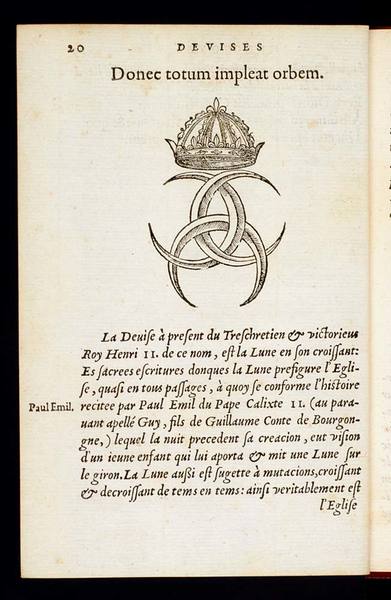 20
DEVISES
Donec totum impleat orbem.
La Deuise à present du Treschretien & victorieus
Roy Henri II. de ce nom, est la Lune en son croissant:
Es sacrees escritures donques la Lune prefigure l'Egli-
se, quasi en tous passages, à quoy se conforme l'histoire
Paul Emil.
recitee par Paul Emil du Pape Calixte II. (au para-
uant apellé Guy, fils de Guillaume Conte de Bourgon-
gne,) lequel la nuit precedent sa creacion, eut vision
d'un ieune enfant qui lui aporta & mit une Lune sur
le giron. La Lune aussi est sugette à mutacions, croissant
& decroissant de tems en tems: ainsi veritablement est
l'Eglise